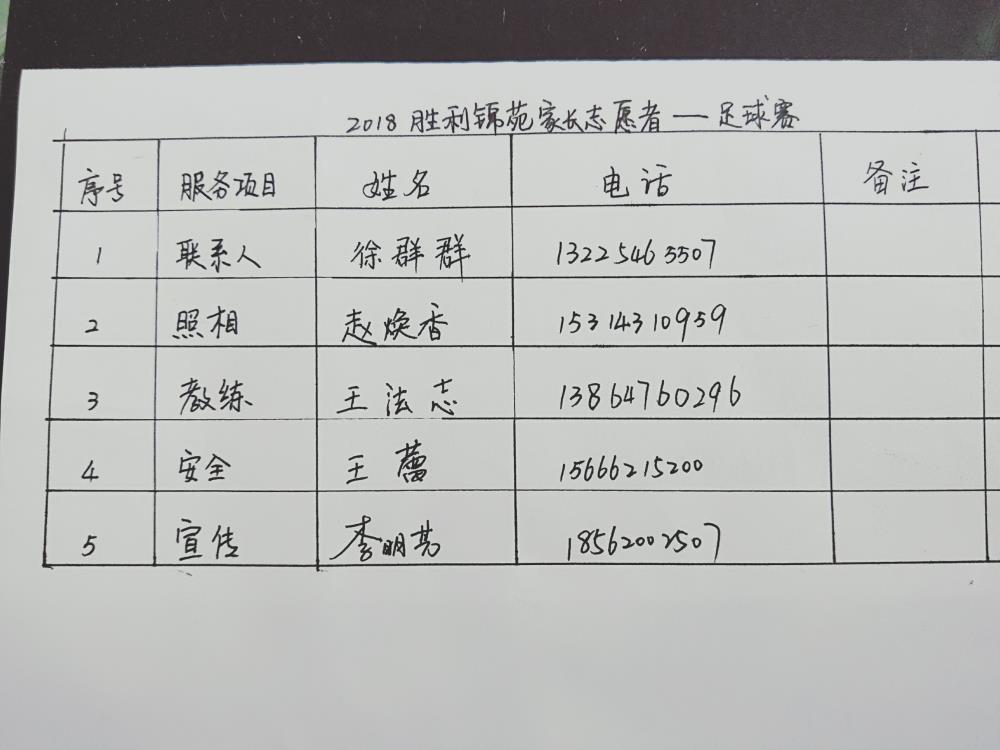 2018 胜利锦苑家长志愿者 — 足球赛
序号 服务项目 姓名 电话 备注
1 联系人 徐群群 13225463507
2 照相 赵焕香 15314310959
3 教练 王法志 13864760296
4 安全 王蕾 15666215200
5 宣传 李明 18562002507